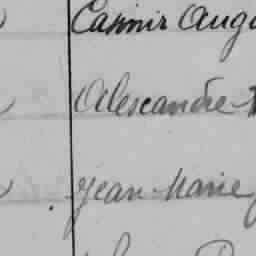 Casimir Aug
Alexandre
Jean Marie